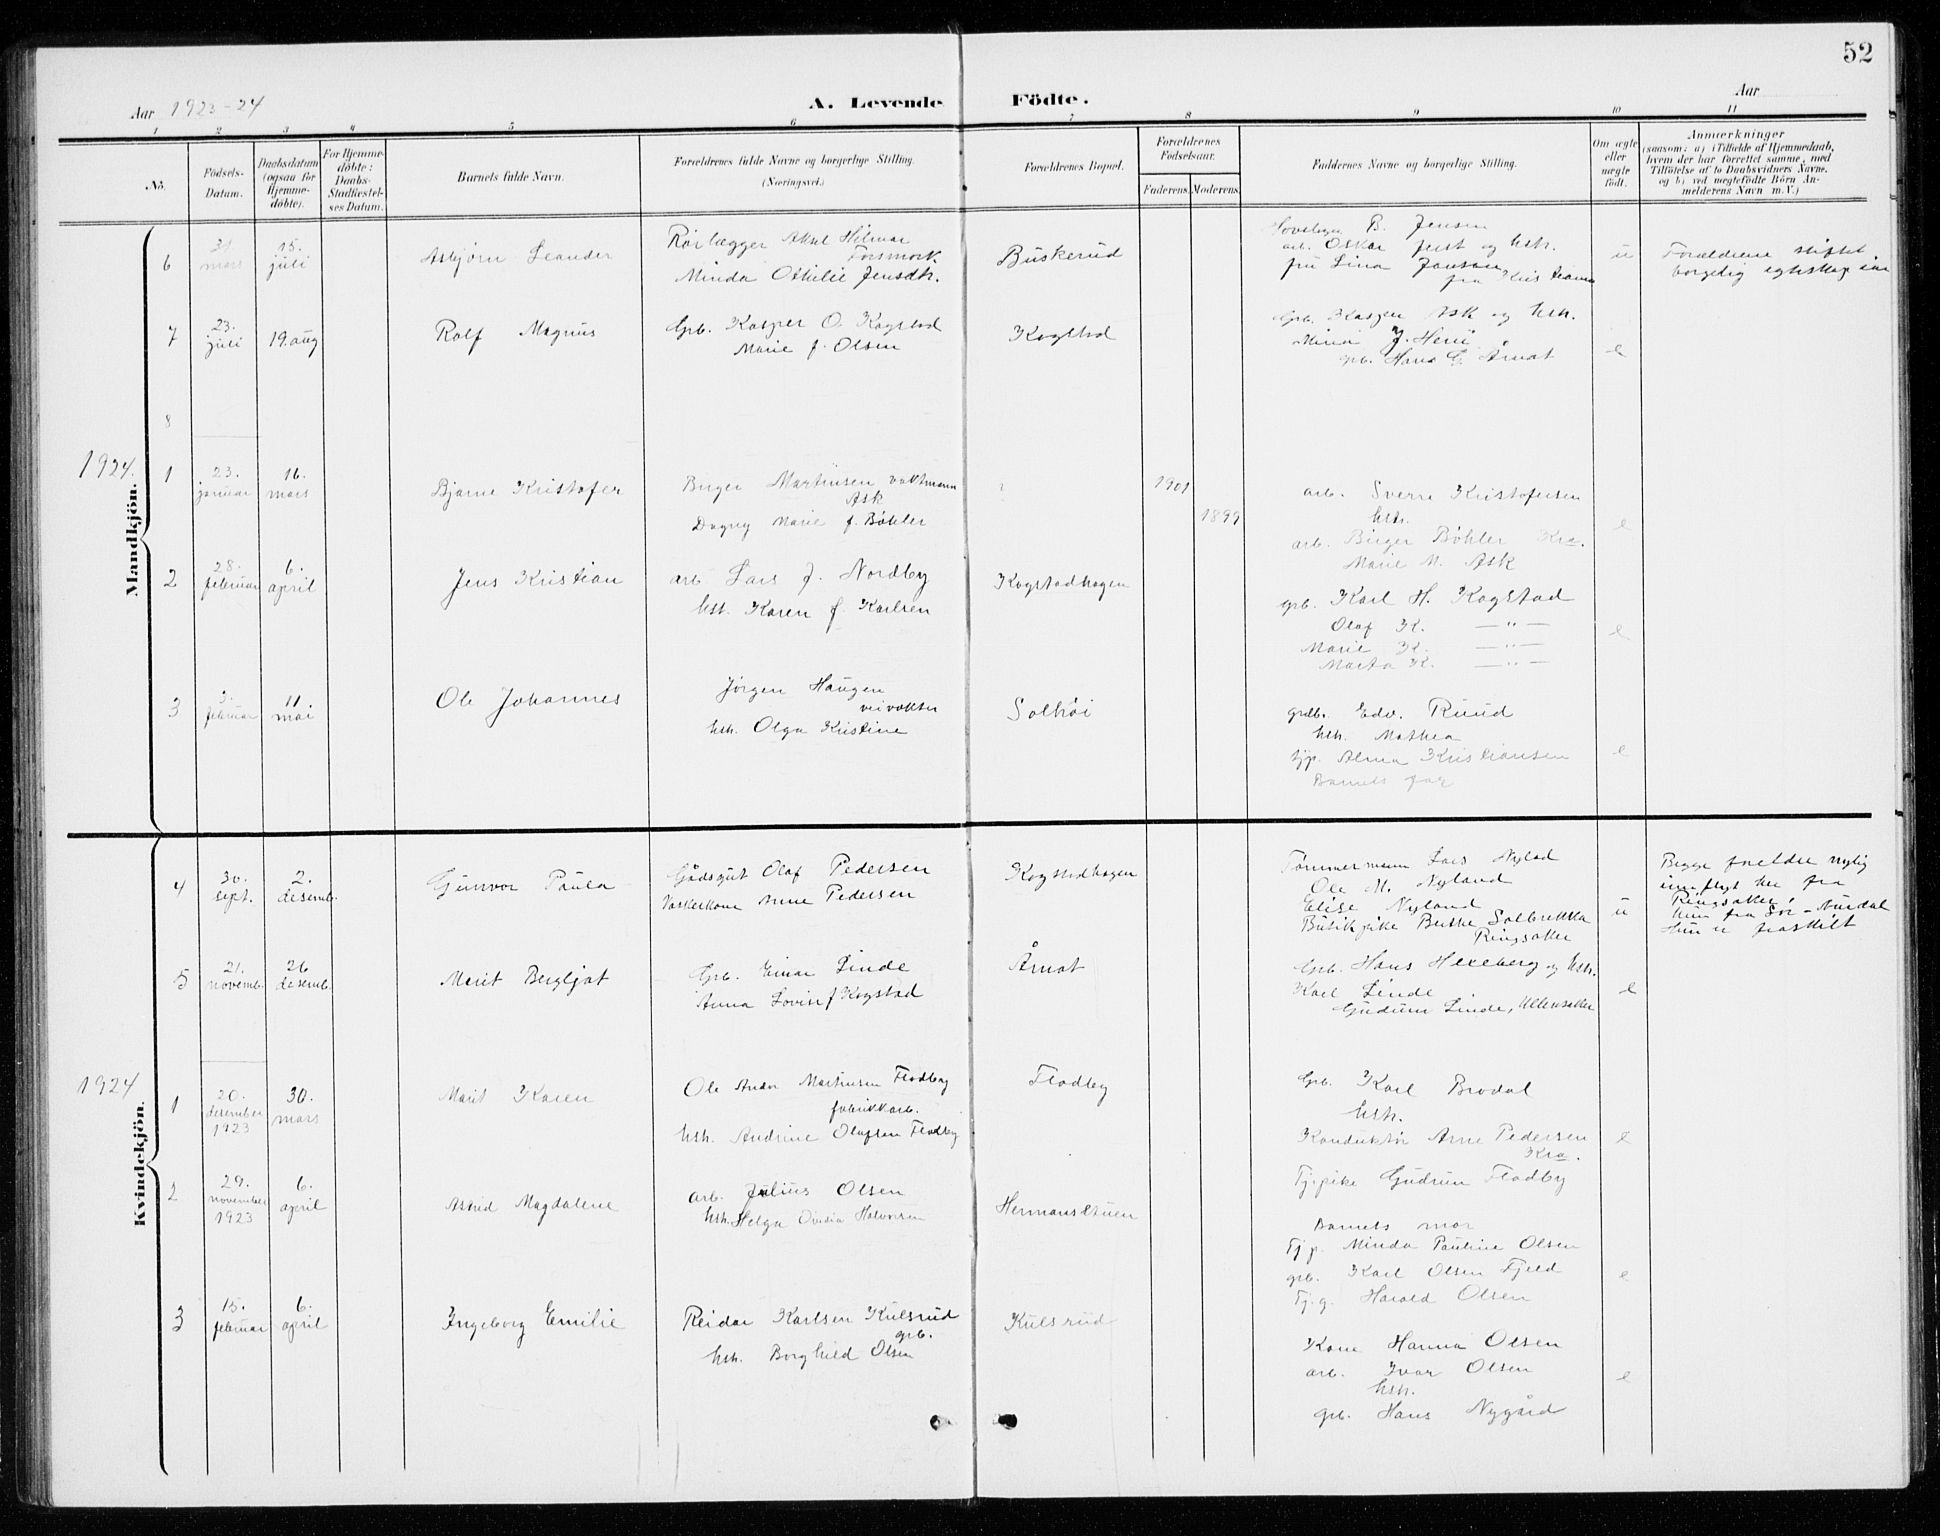 52
Aar 1923-24
A. Levende Födte.
Aar
1 2 3 4 5 6 7 8 9 10 11
No.
Födsels-Datum.
Daabsdatum (ogsaa for Hjemmedöbte).
For Hjemmedöbte: Daabs-Stadfæstelses Datum.
Barnets fulde Navn.
Forældrenes fulde Navne og borgerlige Stilling. (Næringsvei.)
Forældrenes Bopæl.
Forældrenes Födselsaar.
Faderens. Moderens.
Faddernes Navne og borgerlige Stilling.
Om ægte eller uægte födt.
Anmærkninger (saasom: a) i Tilfælde af Hjemmedaab, hvem der har forrettet samme, med Tilföielse af to Daabsvidners Navne, og b) ved uægtefödte Börn Anmelderens Navn m.V.)
Mandkjön.
6
31. mars
15. juli
Asbjörn Leander
Rörlægger Aksel Hilmar Forsmork
Minda Othilie Jensdt.
Buskerud
B. Jensen
arb. Oskar og hstr.
fru Lina Jansen
fra Kristiania
u
Forældrene stiftet
borgelig egteskap
7
23. juli
19. aug
Rolf Magnus
Grb. Kasper O. Kogstad
Marie f. Olsen
Kogstad
Grb. Kasper Ask og hstr.
grb. Hans G. Årnat
e
8
1924.
1
23. januar
16. mars
Bjarne Kristofer
Birger Martinsen vaktmann
Ask
Dagny Marie f. Böhler
?
1901
1899
arb. Sverre Kristofersen
hstr.
arb. Birger Böhler Kra.
Marie M. Ask
e
2
28. februar
6. april
Jens Kristian
arb. Lars J. Nordby
hstr. Karen f. Karlsen
Kogstadhagen
grb. Karl H. Kogstad
Olaf K. — " —
Marie K. — " —
Marta K. — " —
e
3
3. februar
11. mai
Ole Johannes
Jörgen Haugen
veivokter
hstr. Olga Kristine
Solhöi
grdbr. Edv. Ruud
hstr. Mathea
tjp. Alma Kristiansen
Barnets far
e
Kvindekjön.
4
30. sept.
2. desemb.
Gunvor Paula
Gådsgut Olaf Pedersen
Vaskerkone Anne Pedersen
Kogstadhagen
Tömmermann Lars Nyland
Ole M. Nyland
Elise Nyland
Butikpike Borthe Solbrekka
Ringsaker
u
Begge foreldre nylig
innflyt her fra
Ringsaker,
hun fra Sör-Aurdal
Hun er fraskilt
5
21. novemb.
26 desemb.
Marit Bergljot
Grb. Einar Linde
Anna Lovise f Kogstad
Årnat
Grb. Hans Hexeberg og hstr.
Karl Linde
Gudrun Linde, Ullensaker
e
1924
1
20. desember 1923
30. mars
Marit Karen
Ole Andor Martinsen Flodby
fabrikkarb.
hstr. Andrine Olafsen Flodby
Flodby
Grb. Karl Brodal
hstr.
Konduktör Arne Pedersen
Kra.
Tj.pike Gudrun Flodby
e
2
29. november 1923
6. april
Astrid Magdalene
arb. Julius Olsen
hstr. Helga Ovidia Halvorsen
Hermanstuen
Barnets mor
Tj.p. Minda Pauline Olsen
grb. Karl Olsen Fjeld
Tj.g. Harald Olsen
e
3
15. februar
6. april
Ingeborg Emilie
Reidar Karlsen Kulsrud
grb.
hstr. Borghild Olsen
Kulsrud
Kone Hanna Olsen
arb. Ivar Olsen
hstr.
grb. Hans Nygård
e